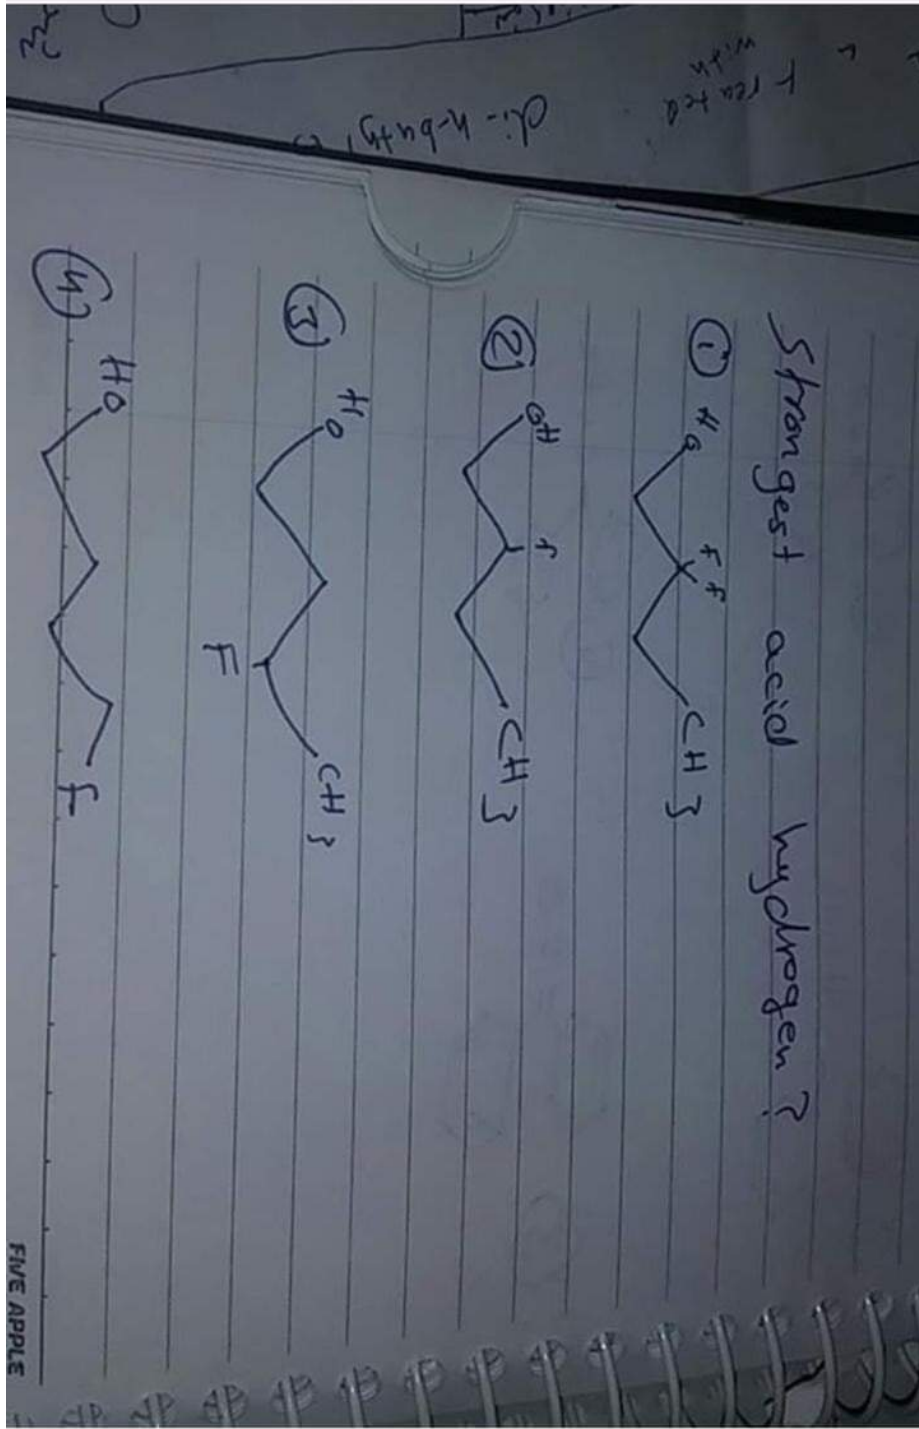 Treated
with
di-n-butyl
Strongest acid hydrogen?
① HO F F CH3
② OH F CH3
③ HO F CH3
④ HO F
FIVE APPLE